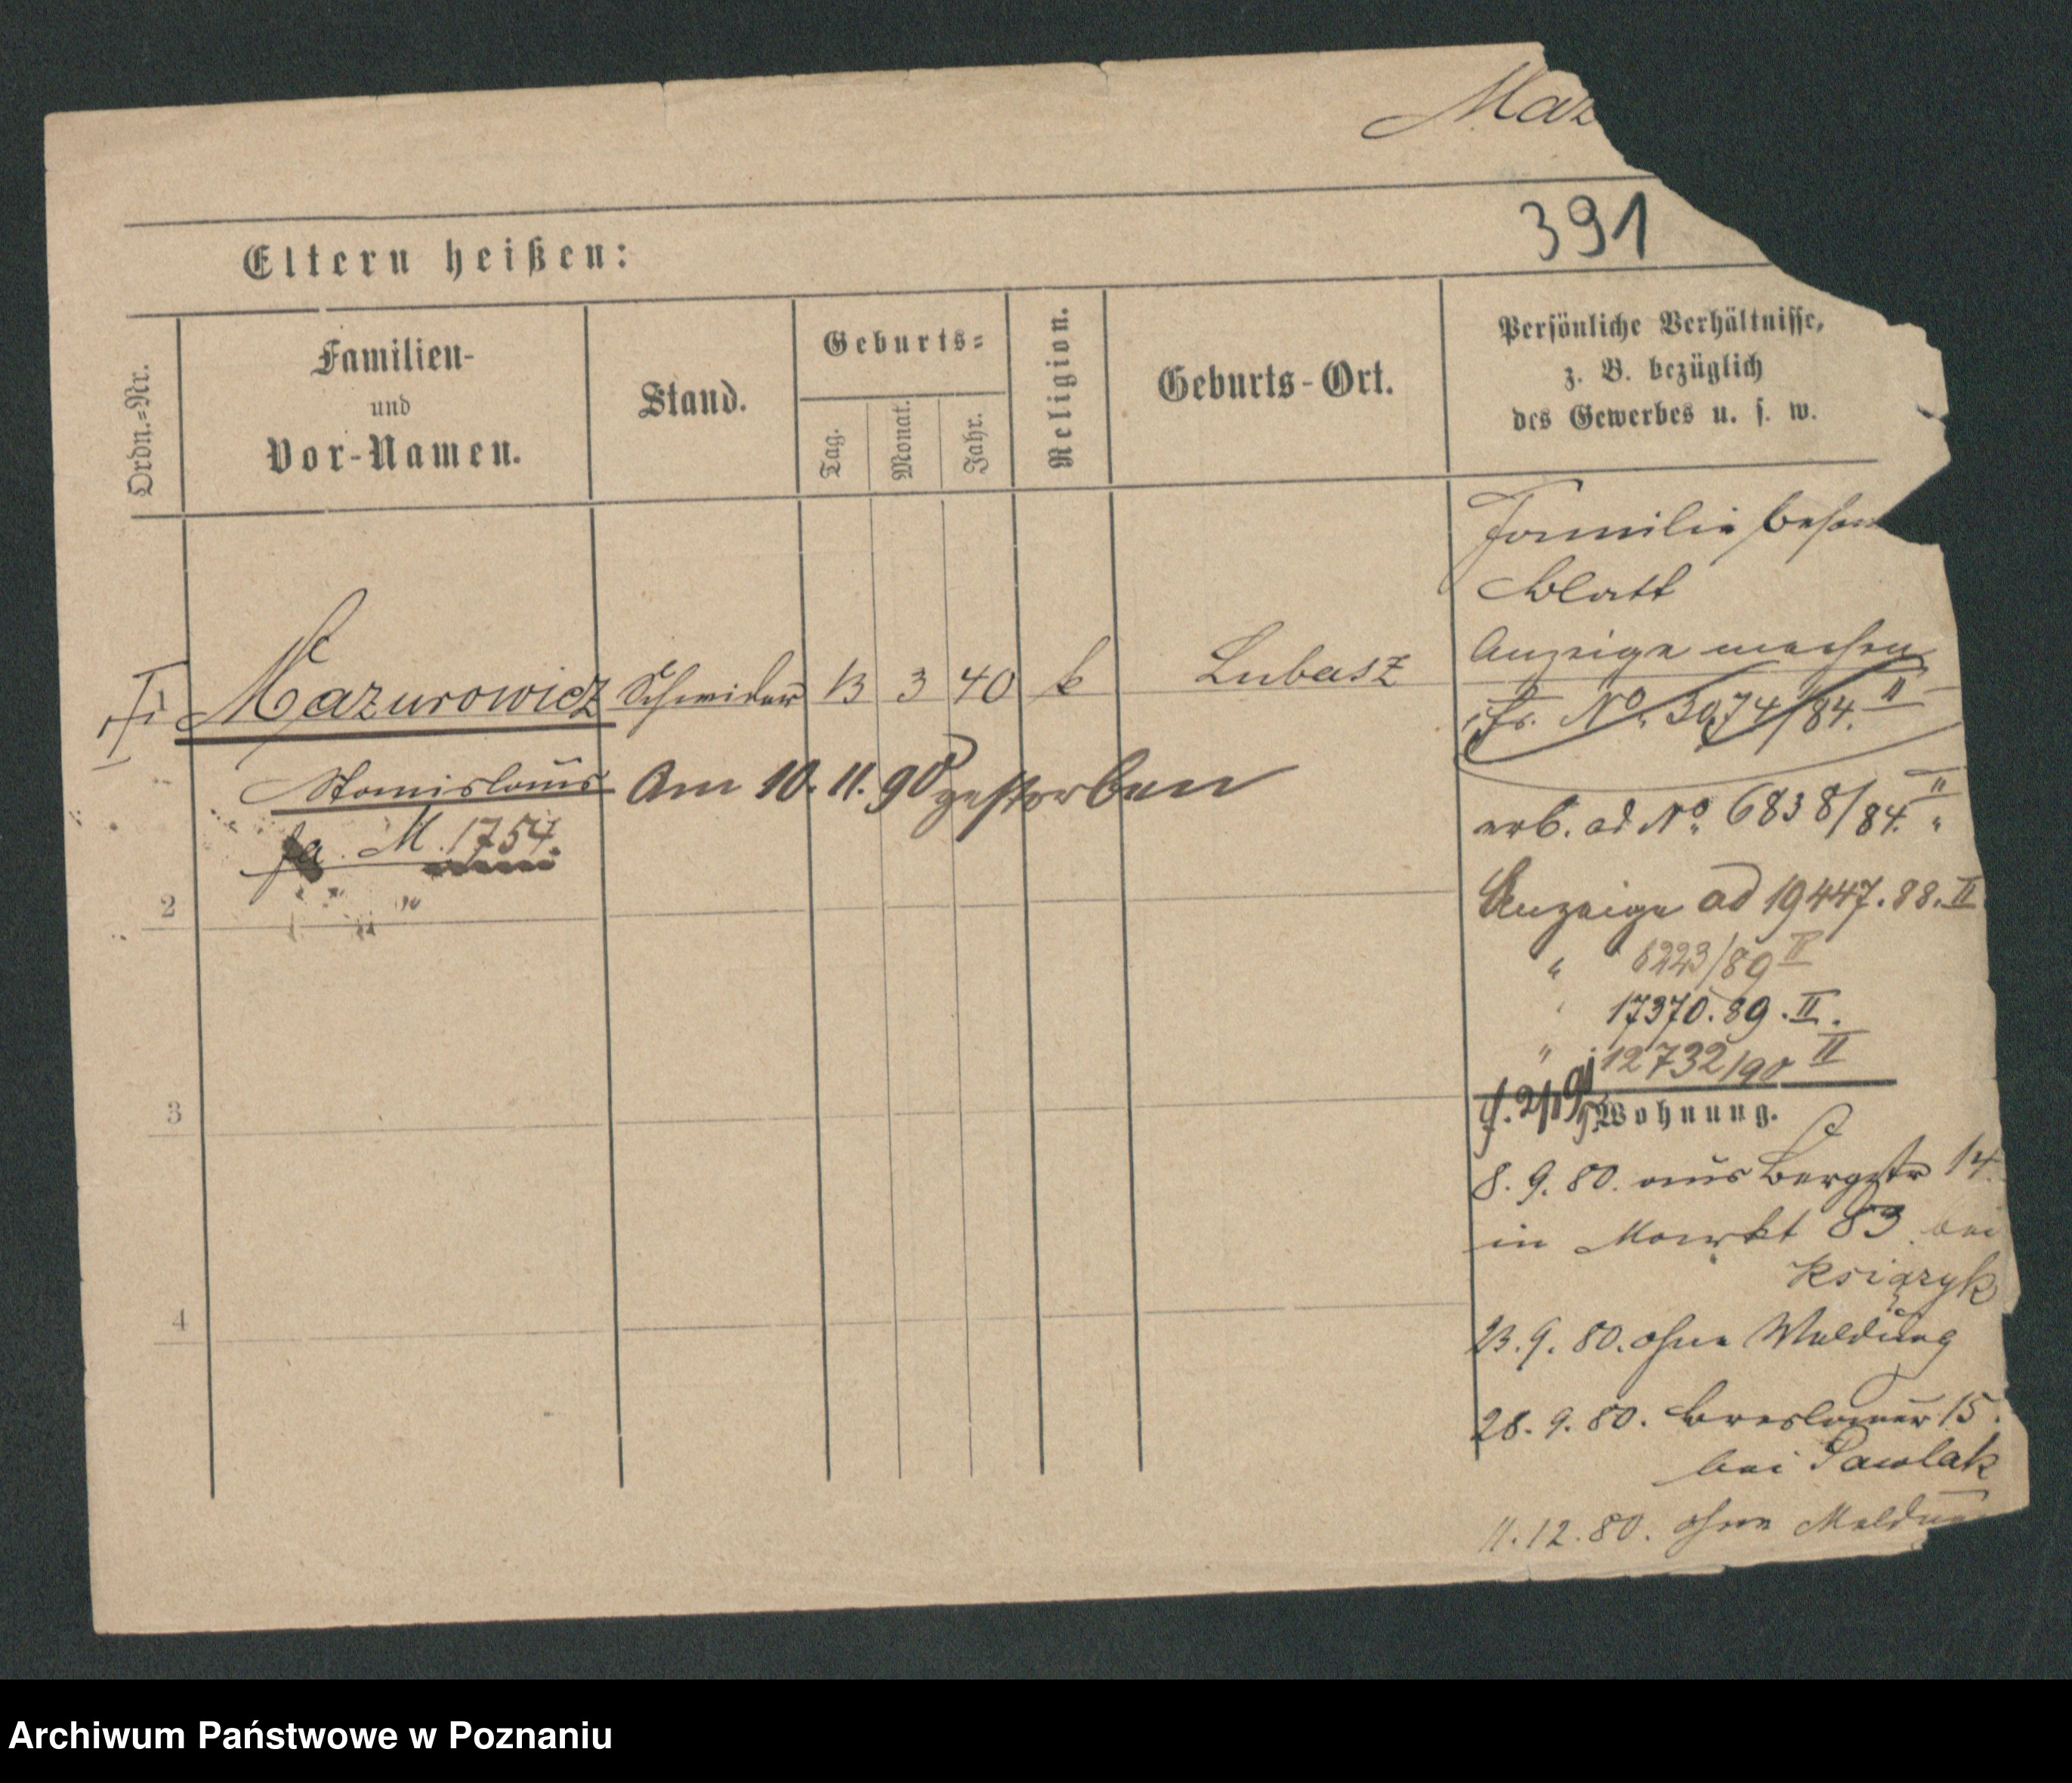 Maz
391
Eltern heißen:
Ordn.-Nr.
Familien-
und
Vor-Namen.
Stand.
Geburts-
Tag.
Monat.
Jahr.
Religion.
Geburts-Ort.
Persönliche Verhältnisse,
z. B. bezüglich
des Gewerbes u. s. w.
Familie beson
Blatt
Anzeige machen
Mazurowicz Schneider 13 3 40 k Lubasz
No. 3074/84. II
Stanislaus Am 10. 11. 90 gestorben
M. 1754.
erb. ad No. 6838/84. II
2
Anzeige ad 19447. 88. II
" 6223/89 II
17370. 89. II.
" 12732/90 II
3
Wohnung.
8. 9. 80. aus Bergstr 14
in Markt 83 bei
Książyk
4
23. 9. 80. ohne Meldung
28. 9. 80. Breslauer 15.
bei Pawlak
11. 12. 80. ohne Meldun
Archiwum Państwowe w Poznaniu